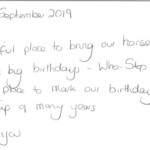 September 2019
ful place to bring our horse
big birthdays - Who-Stop
place to mark our birthday
ip of many years
you